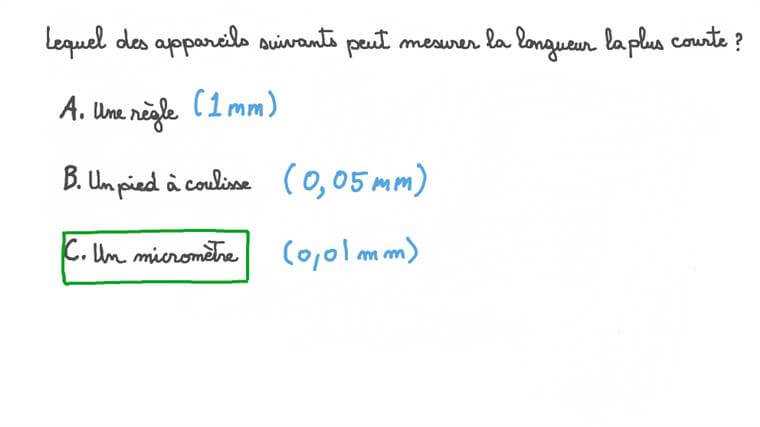 Lequel des appareils suivants peut mesurer la longueur la plus courte ?
A. Une règle (1 mm)
B. Un pied à coulisse (0,05 mm)
C. Un micromètre (0,01 mm)